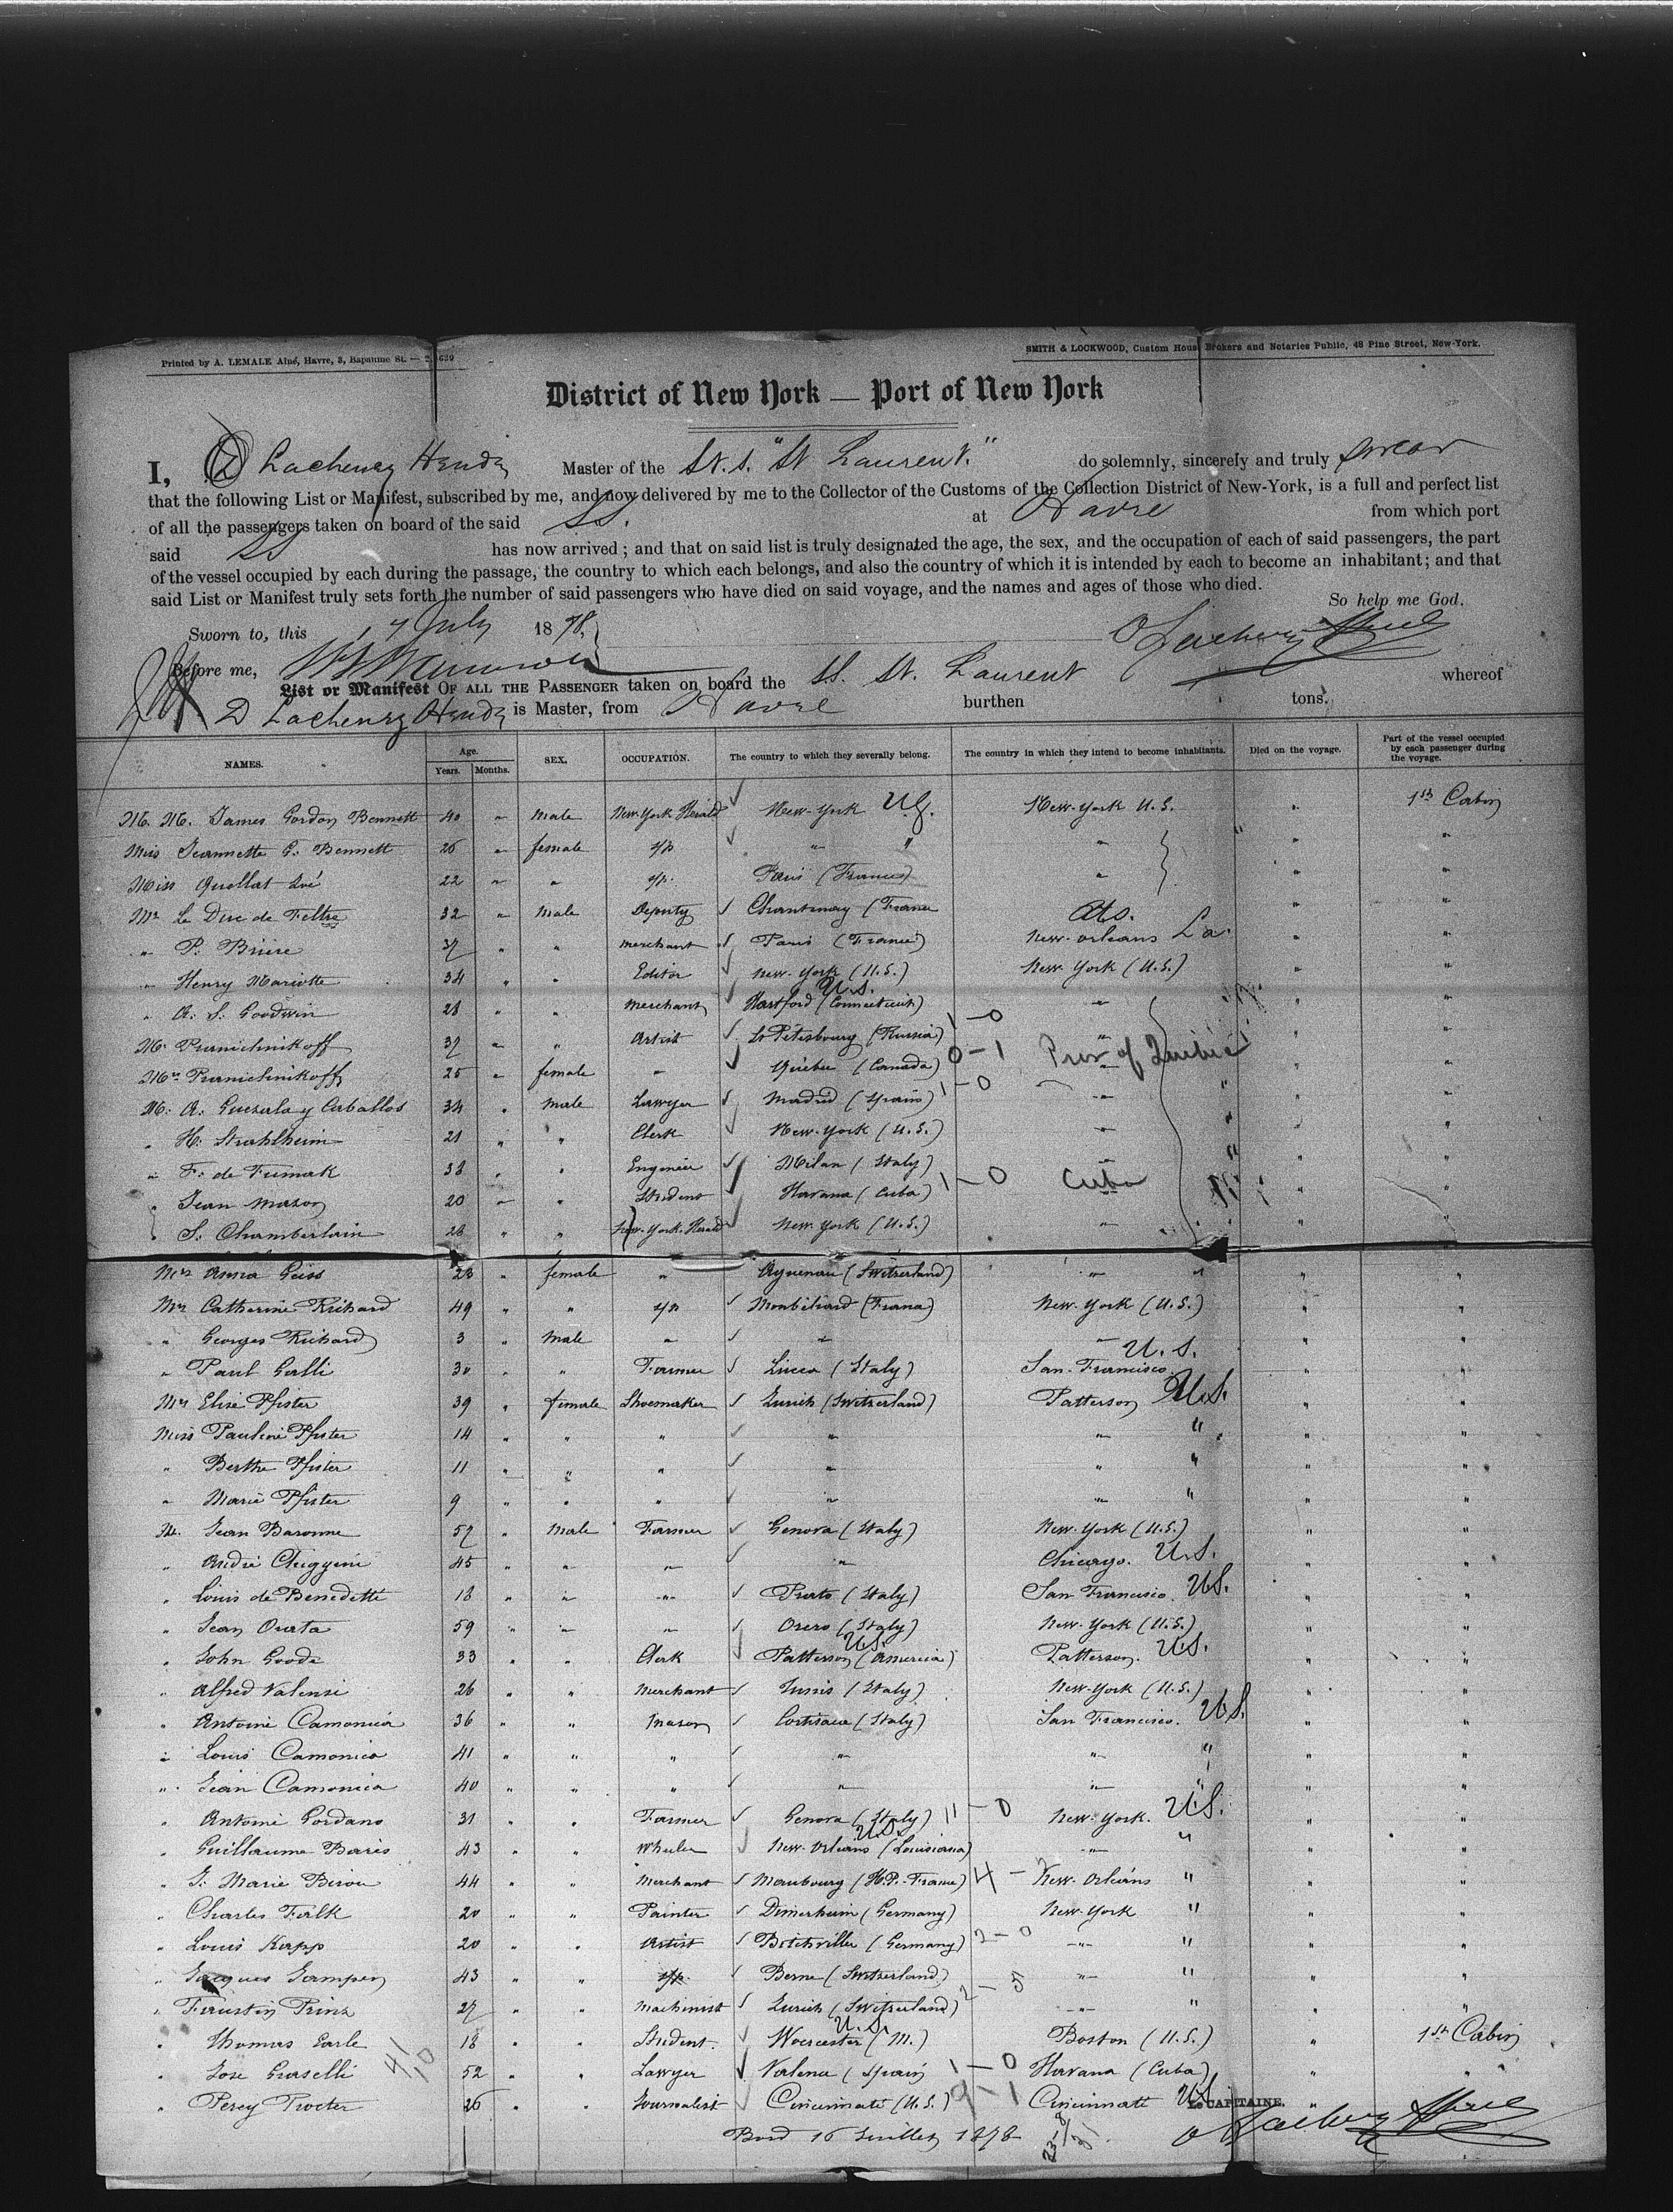 Printed by A. LEMALE Aîné, Havre, 3, Bapaume St. —
SMITH & LOCKWOOD, Custom House Brokers and Notaries Public, 48 Pine Street, New-York.
District of New York — Port of New York
I, Lachenez Heude Master of the St. S. "St Laurent" do solemnly, sincerely and truly swear
that the following List or Manifest, subscribed by me, and now delivered by me to the Collector of the Customs of the Collection District of New-York, is a full and perfect list
of all the passengers taken on board of the said SS. at Havre from which port
said SS has now arrived ; and that on said list is truly designated the age, the sex, and the occupation of each of said passengers, the part
of the vessel occupied by each during the passage, the country to which each belongs, and also the country of which it is intended by each to become an inhabitant ; and that
said List or Manifest truly sets forth the number of said passengers who have died on said voyage, and the names and ages of those who died.
So help me God.
Sworn to, this July 1878,
Before me,
List or Manifest OF ALL THE PASSENGER taken on board the SS. St. Laurent whereof
D Lachenez Heude is Master, from Havre burthen tons.
NAMES. Age. Years. Months. SEX. OCCUPATION. The country to which they severally belong. The country in which they intend to become inhabitants. Died on the voyage. Part of the vessel occupied by each passenger during the voyage.
M. M. James Gordon Bennett 40 " Male New-York Herald New-York U.S. New-York U.S. " 1st Cabin
Miss Jeannette G. Bennett 26 " female " " " " "
Miss 22 " " Paris (France) " " "
Mr Le Duc de Feltre 32 " Male Deputy Chantenay (France " "
" P. Brière 37 " " merchant Paris (France) New-Orleans La. " "
" Henry Mariotte 34 " " Editor New-York (U.S.) New-York (U.S.) " "
" A. S. Goodwin 28 " " Merchant Hartford (Connecticut) U.S. " " "
M. Purnichnikoff 37 " " Artist St Petersbourg (Russia) 1-0 " " "
Mrs Purnichnikoff 25 " female " Quebec (Canada) 0-1 Prov of Quebec " "
M. A. y Caballos 34 " Male Lawyer Madrid (Spain) 1-0 " " "
" H. Strahlheim 21 " " Clerk New-York (U.S.) " " "
" F. de Fumak 38 " " Engineer Milan (Italy) " " "
" Jean Mason 20 " " Student Havana (Cuba) 1-0 Cuba " "
" S. Chamberlain 28 " " New-York-Herald New York (U.S.) " " "
Mrs Anna Geiss 23 " female " (Switzerland) " " "
Mrs Catherine Richard 49 " " Montbéliard (France) New-York (U.S.) " "
" Georges Richard 3 " Male " " " " "
" Paul Galli 30 " " Farmer Lucca (Italy) San-Francisco U.S. " "
Mrs Elise Pfister 39 " female Shoemaker Zurich (Switzerland) Patterson U.S. " "
Miss Pauline Pfister 14 " " " " " " " "
" Berthe Pfister 11 " " " " " " " "
" Marie Pfister 9 " " " " " " " "
M. Jean Baronne 57 " Male Farmer Genova (Italy) New-York (U.S.) " "
" André 45 " " " " Chicago. U.S. " "
" Louis de Benedetti 18 " " " Prato (Italy) San Francisco. U.S. " "
" Jean Orata 59 " " " Orero (Italy) New-York (U.S.) " "
" John Goode 33 " " Clerk Patterson (America) U.S. Patterson. U.S. " "
" Alfred Valensi 26 " " Merchant Tunis (Italy) New-York (U.S.) " "
" Antoine Camonica 36 " " Mason (Italy) San Francisco. U.S. " "
" Louis Camonica 41 " " " " " " " "
" Jean Camonica 40 " " " " " " " "
" Antoine Gordano 31 " " Farmer Genova (Italy) 11-0 New-York. U.S. " "
" Guillaume Baris 43 " " Wheeler New-Orleans (Louisiana) U.S. " " " "
" J. Marie Birou 44 " " Merchant Maubourg (H.P.-France) New-Orleans " " "
" Charles Falk 20 " " Painter (Germany) New-York " " "
" Louis Kapp 20 " " Artist (Germany) 2-0 " " " "
" Jacques Gamper 43 " " Berne (Switzerland) " " " "
" Faustin Prinz 27 " " Machinist Zurich (Switzerland) 2-5 " " " "
" Thomas Earle 18 " " Student Worcester (M.) U.S. Boston (U.S.) " 1st Cabin
" Jose Graselli 52 " " Lawyer (Spain) 1-0 Havana (Cuba) " "
" Percy Procter 26 " " Journalist Cincinnati (U.S.) 9-1 Cincinnati U.S. "
41/10
Le CAPITAINE.
Bord 16 Juillet 1878
23-8
31